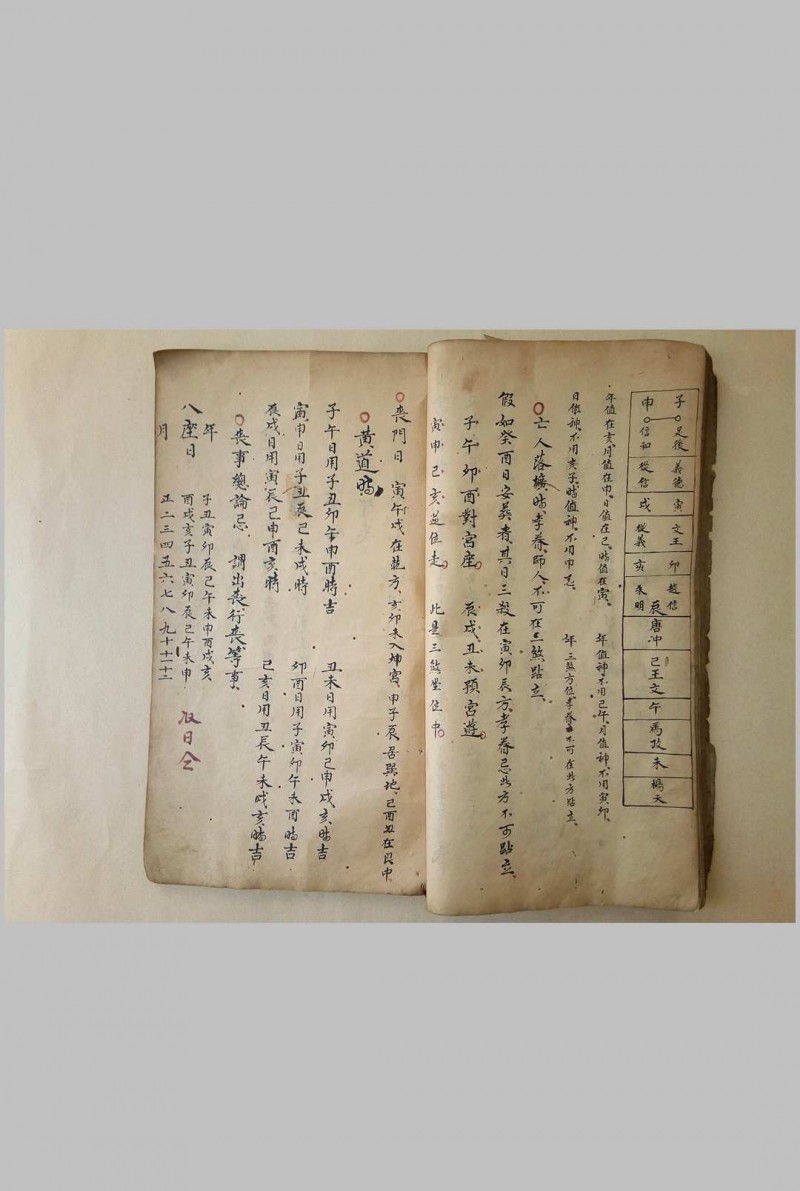 子 足後 義德 寅 文王 卯 趙信 辰 唐冲 巳 王文 午 馬故 未 楊天
申 信和 從信 戌 從義 亥 朱明
年值在亥,月值在申,日值在己,時值在寅。 年值神,不用己午,月值神,不用寅卯,
日值神,不用亥子,時值神,不用申 年三煞方位,孝眷不可在此方跕立,
亡人落壙時孝眷師人不可在三煞跕立,
假如癸酉日安葬者,其日三殺在寅卯辰方,孝眷忌此方不可跕立,
子午卯酉對宮座 辰戌丑未預宮遊
寅申己亥並位走 此是三煞坐位中
喪門日 寅午戌在乾方,亥卯未入坤宮,申子辰居巽地,己酉丑在艮中
黃道時
子午日用子丑卯午申酉時吉 丑未日用寅卯己申戌亥時吉
寅申日用子丑辰己未戌時 卯酉日用子寅卯午未酉時吉
辰戌日用寅辰己申酉亥時 己亥日用丑辰午未戌亥時吉
喪事總論忌 謂出喪行喪等事
年 子丑寅卯辰己午未申酉戌亥
八座日 酉戌亥子丑寅卯辰己午未申
月 正二三四五六七八九十十一十二
收日仝